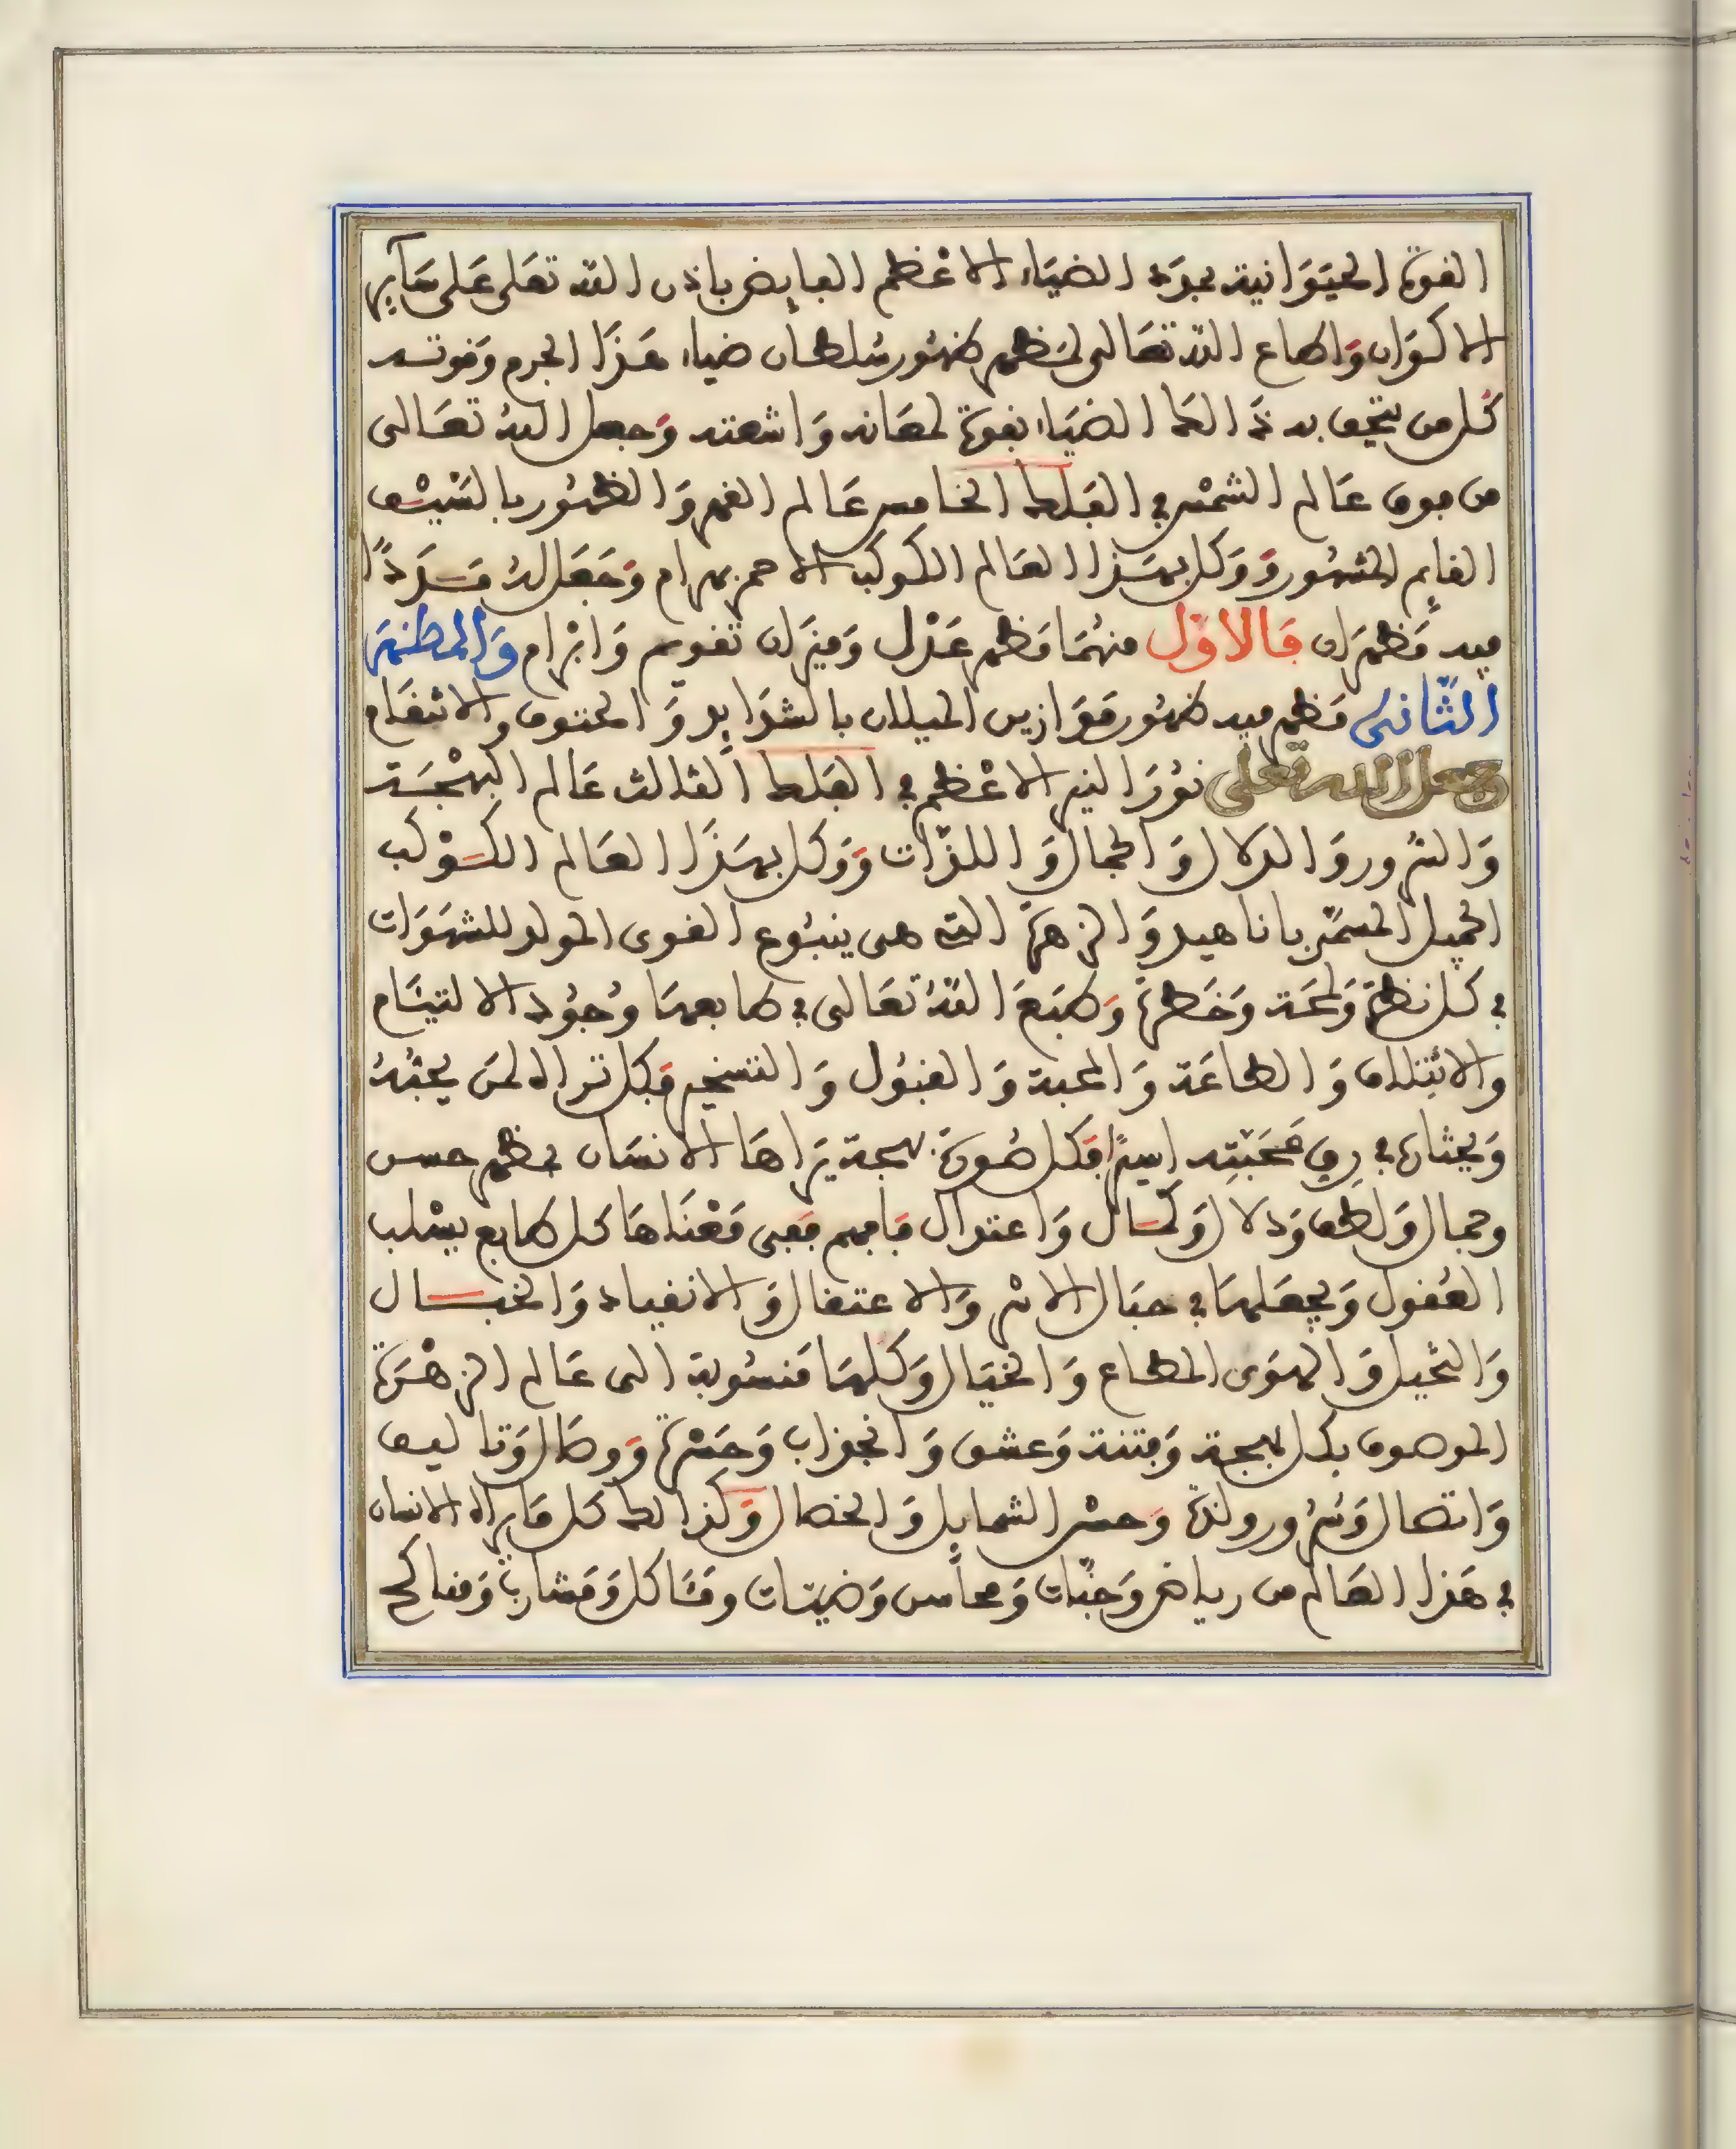 القوة الحيوانية بجود الضياء الاعظم الفايض باذن الله تعلى على سآير
الاكوان واطاع الله تعالى لمظهر ظهور سلطان ضياء هذا الجرم وقوته
كل من يتحف به ذالك الضياء بقوة لمعانه واشعته وجعل الله تعالى
من فوق عالم الشمس في الفلك الخامس عالم القهر والظهور بالسيف
القايم المشهور ووكل بهذا العالم الكوكب الاحمر بهرام وجعل له
فيه مظهران فالاول منهما مظهر عدل وميزان تقويم وابرام والمظهر
الثانى مظهر فيه ظهور موازين الميلان بالشدايد والحتوف والانتقام
وجعل الله تعلى نور النير الاعظم في الفلك الثالث عالم البهجة
والسرور والدلال والجمال واللذات ووكل بهذا العالم الكوكب
الجميل المسمى باناهيد والزهرة التي هى ينبوع القوى المولد للشهوات
في كل نظرة ولمحة وخطرة وطبع الله تعالى في طابعها وجود الالتيام
والائتلاف والطاعة والمحبة والقبول والتسخير فكل تراه لمن يحبه
ويختاره في رق محبته اسيرا فكل صورة بهجة يراها الانسان بمظهر حسن
وجمال ولطف ودلال وكمال واعتدال فافهم ففى معناها كل طابع يسلب
العقول ويجعلها في حبال الاسر والاعتقال والانقياد والخبال
والتخيل والهوى المطاع والخيال وكلها منسوبة الى عالم الزهرة
الموصوف بكل بهجة وفتنة وعشق وانجذاب وحسرة ووصال وتاليف
واتصال وسرور ولذة وحسن الشمايل والخصال وكذالك كل ما يراه الانسان
في هذا العالم من رياض وجنات ومحاسن وضيتات ومئاكل ومشارب ومناكح